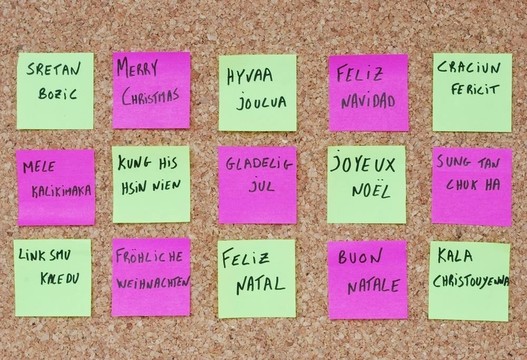 SRETAN
BOZIC
MERRY
CHRISTMAS
HYVAA
JOULUA
FELIZ
NAVIDAD
CRACIUN
FERICIT
MELE
KALIKIMAKA
KUNG HIS
HSIN NIEN
GLADELIG
JUL
JOYEUX
NOËL
SUNG TAN
CHUK HA
LINKSMU
KALEDU
FRÖHLICHE
WEIHNACHTEN
FELIZ
NATAL
BUON
NATALE
KALA
CHRISTOUYENNA